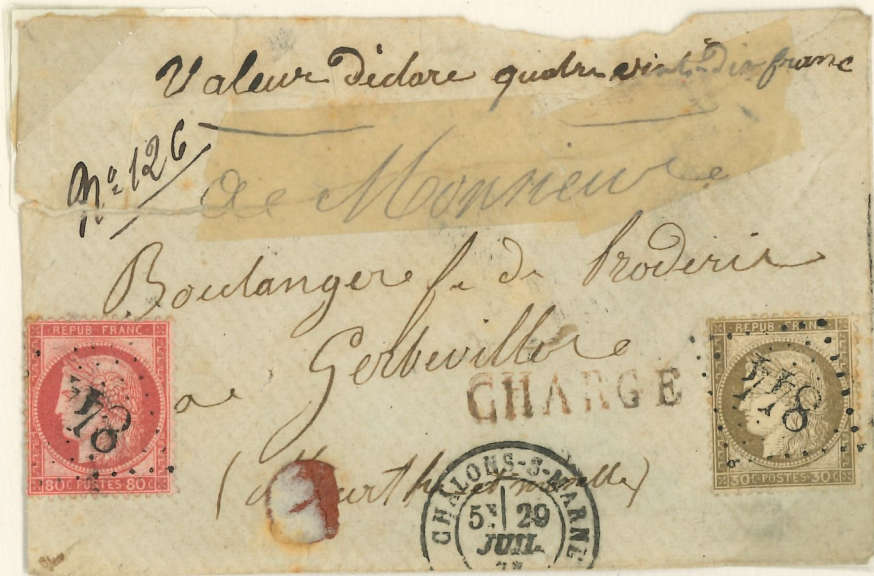 Valeur Déclare quatre vint-dix franc
No 126
de Monsieur
Boulangere f. de Broderie
a Gerbeviller
CHARGE
(Meurthe et moselle)
REPUB FRANC
80 C POSTES 80 C
844
REPUB FRANC
30 C POSTES 30 C
8448
CHALONS-S-MARNE
5E 29
JUIL.